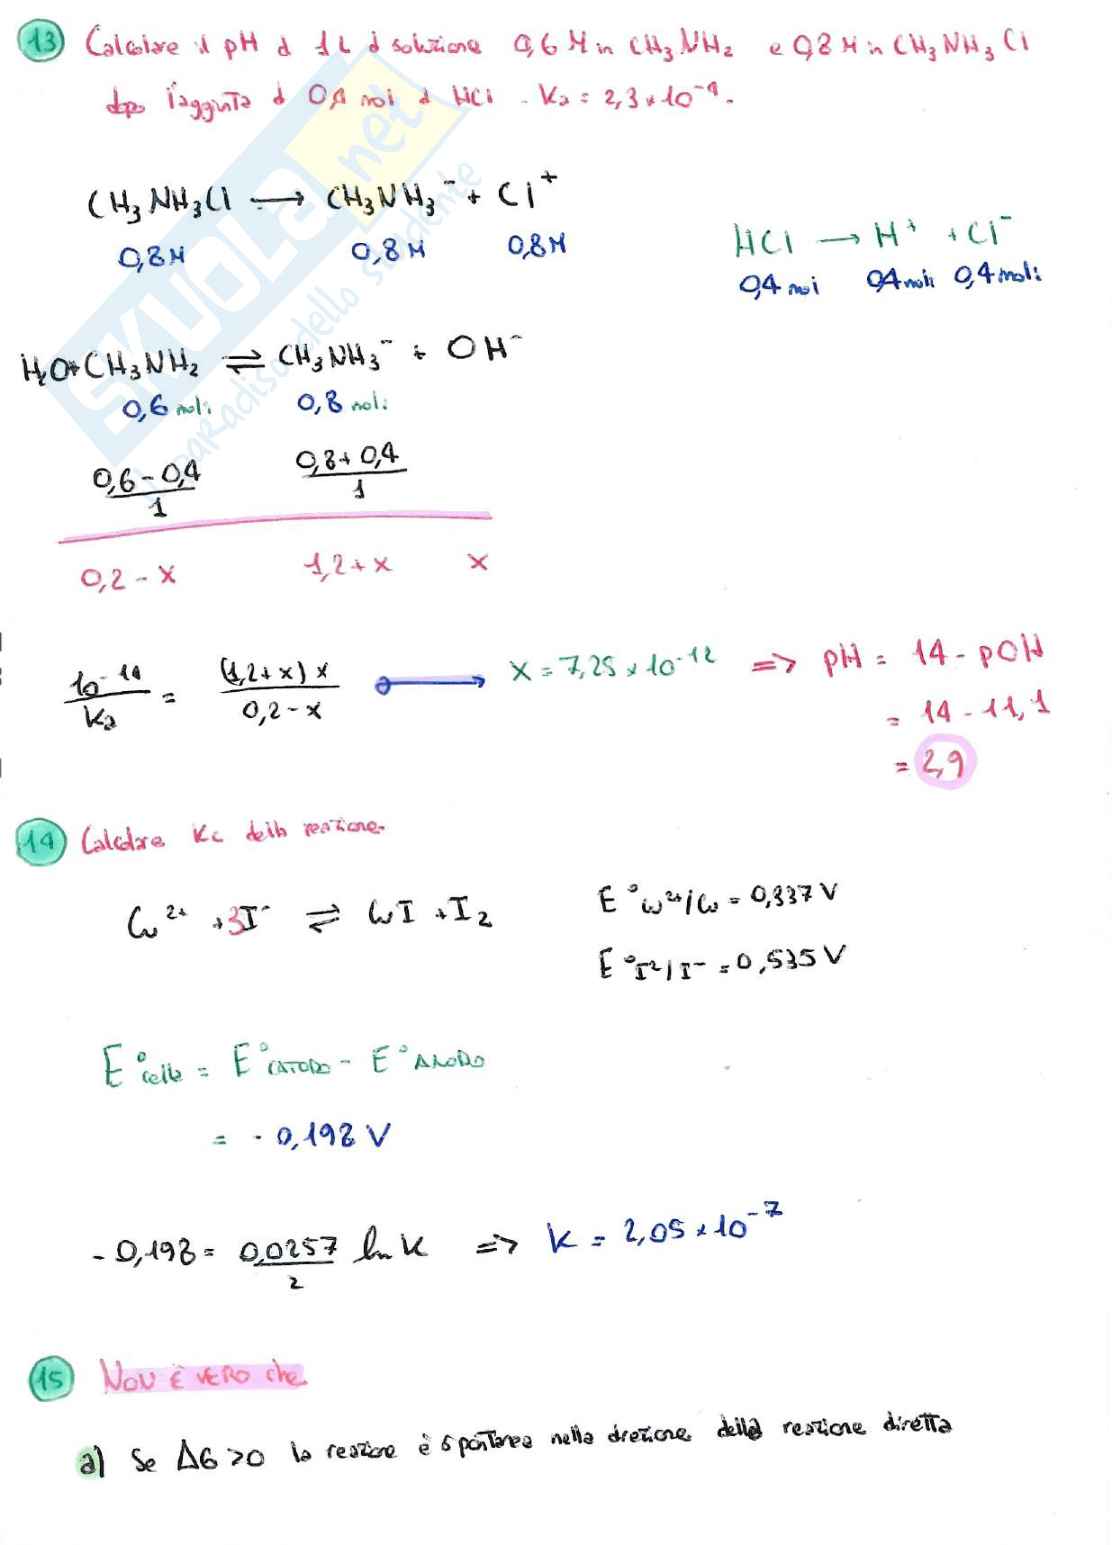 13 Calcolare il pH di 1 L di soluzione 0,6 M in CH3NH2 e 0,8 M in CH3NH3Cl
dopo l'aggiunta di 0,4 mol di HCl. Ka = 2,3 * 10^-9.
SKUOLA.net
il paradiso dello studente
CH3NH3Cl → CH3NH3^- + Cl^+
0,8 M 0,8 M 0,8 M
HCl → H^+ + Cl^-
0,4 mol 0,4 moli 0,4 moli
H2O + CH3NH2 ⇌ CH3NH3^- + OH^-
0,6 moli 0,8 moli
(0,6 - 0,4)/1 (0,8 + 0,4)/1
0,2 - x 1,2 + x x
10^-14/Ka = (1,2 + x) x/(0,2 - x) → x = 7,25 * 10^-12 => pH = 14 - pOH
= 14 - 11,1
= 2,9
14 Calcolare Kc della reazione.
Cu^2+ + 3I^- ⇌ CuI + I2
E° Cu^2+/Cu = 0,337 V
E° I2/I^- = 0,535 V
E°cella = E°CATODO - E°ANODO
= - 0,198 V
- 0,198 = 0,0257/2 ln K => K = 2,05 * 10^-7
15 NON È VERO che
a) Se ΔG > 0 la reazione è spontanea nella direzione della reazione diretta